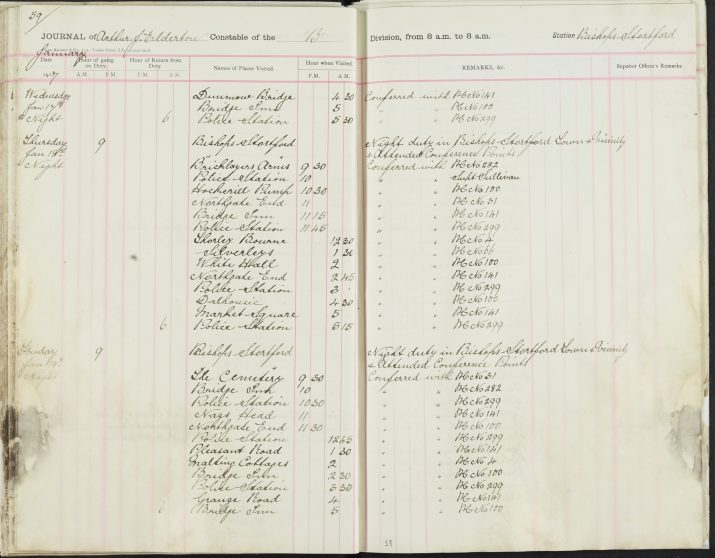 59
JOURNAL of Arthur J. Elderton Constable of the "B" Division, from 8 a.m. to 8 a.m. Station Bishops-Stortford
January
Date Hour of going on Duty. Hour of Return from Duty. Names of Places Visited. Hour when Visited. REMARKS, &c. Superior Officer's Remarks.
1917 A.M. P.M. A.M. P.M. P.M. A.M.
Wednesday Dunmow Bridge 4 30 Conferred with PC No 141
Jan 17th Bridge Inn 5 " " PC No 100
Night 6 Police Station 5 30 " " PC No 299
Thursday 9 Bishops-Stortford Night duty in Bishops-Stortford Town & Vicinity
Jan 18th & Attended Conference Points
Night Bricklayers Arms 9 30 Conferred with PC No 282
Police Station 10 " " Sgt Sullivan
Hockerill Pump 10 30 " " PC No 100
Northgate End 11 " " PC No 31
Bridge Inn 11 15 " " PC No 141
Police Station 11 45 " " PC No 299
Thorley Bourne 12 30 " " PC No 4
Silverleys 1 30 " "
White Hall 2 " " PC No 100
Northgate End 2 45 " " PC No 141
Police Station 3 " " PC No 299
Dalhousie 4 30 " " PC No 100
Market Square 5 " " PC No 141
6 Police Station 5 15 " " PC No 299
Friday 9 Bishops-Stortford Night duty in Bishops-Stortford Town & Vicinity
Jan 19th & Attended Conference Points
Night The Cemetery 9 30 Conferred with PC No 31
Bridge Inn 10 " " PC No 282
Police Station 10 30 " " PC No 299
Nags Head 11 " " PC No 141
Northgate End 11 30 " " PC No 100
Police Station 12 45 " " PC No 299
Pleasant Road 1 30 " " PC No 141
Malting Cottages 2 " " PC No 4
Bridge Inn 2 30 " " PC No 100
Police Station 3 30 " " PC No 299
Grange Road 4 " " PC No 141
6 Bridge Inn 5 " " PC No 100
59